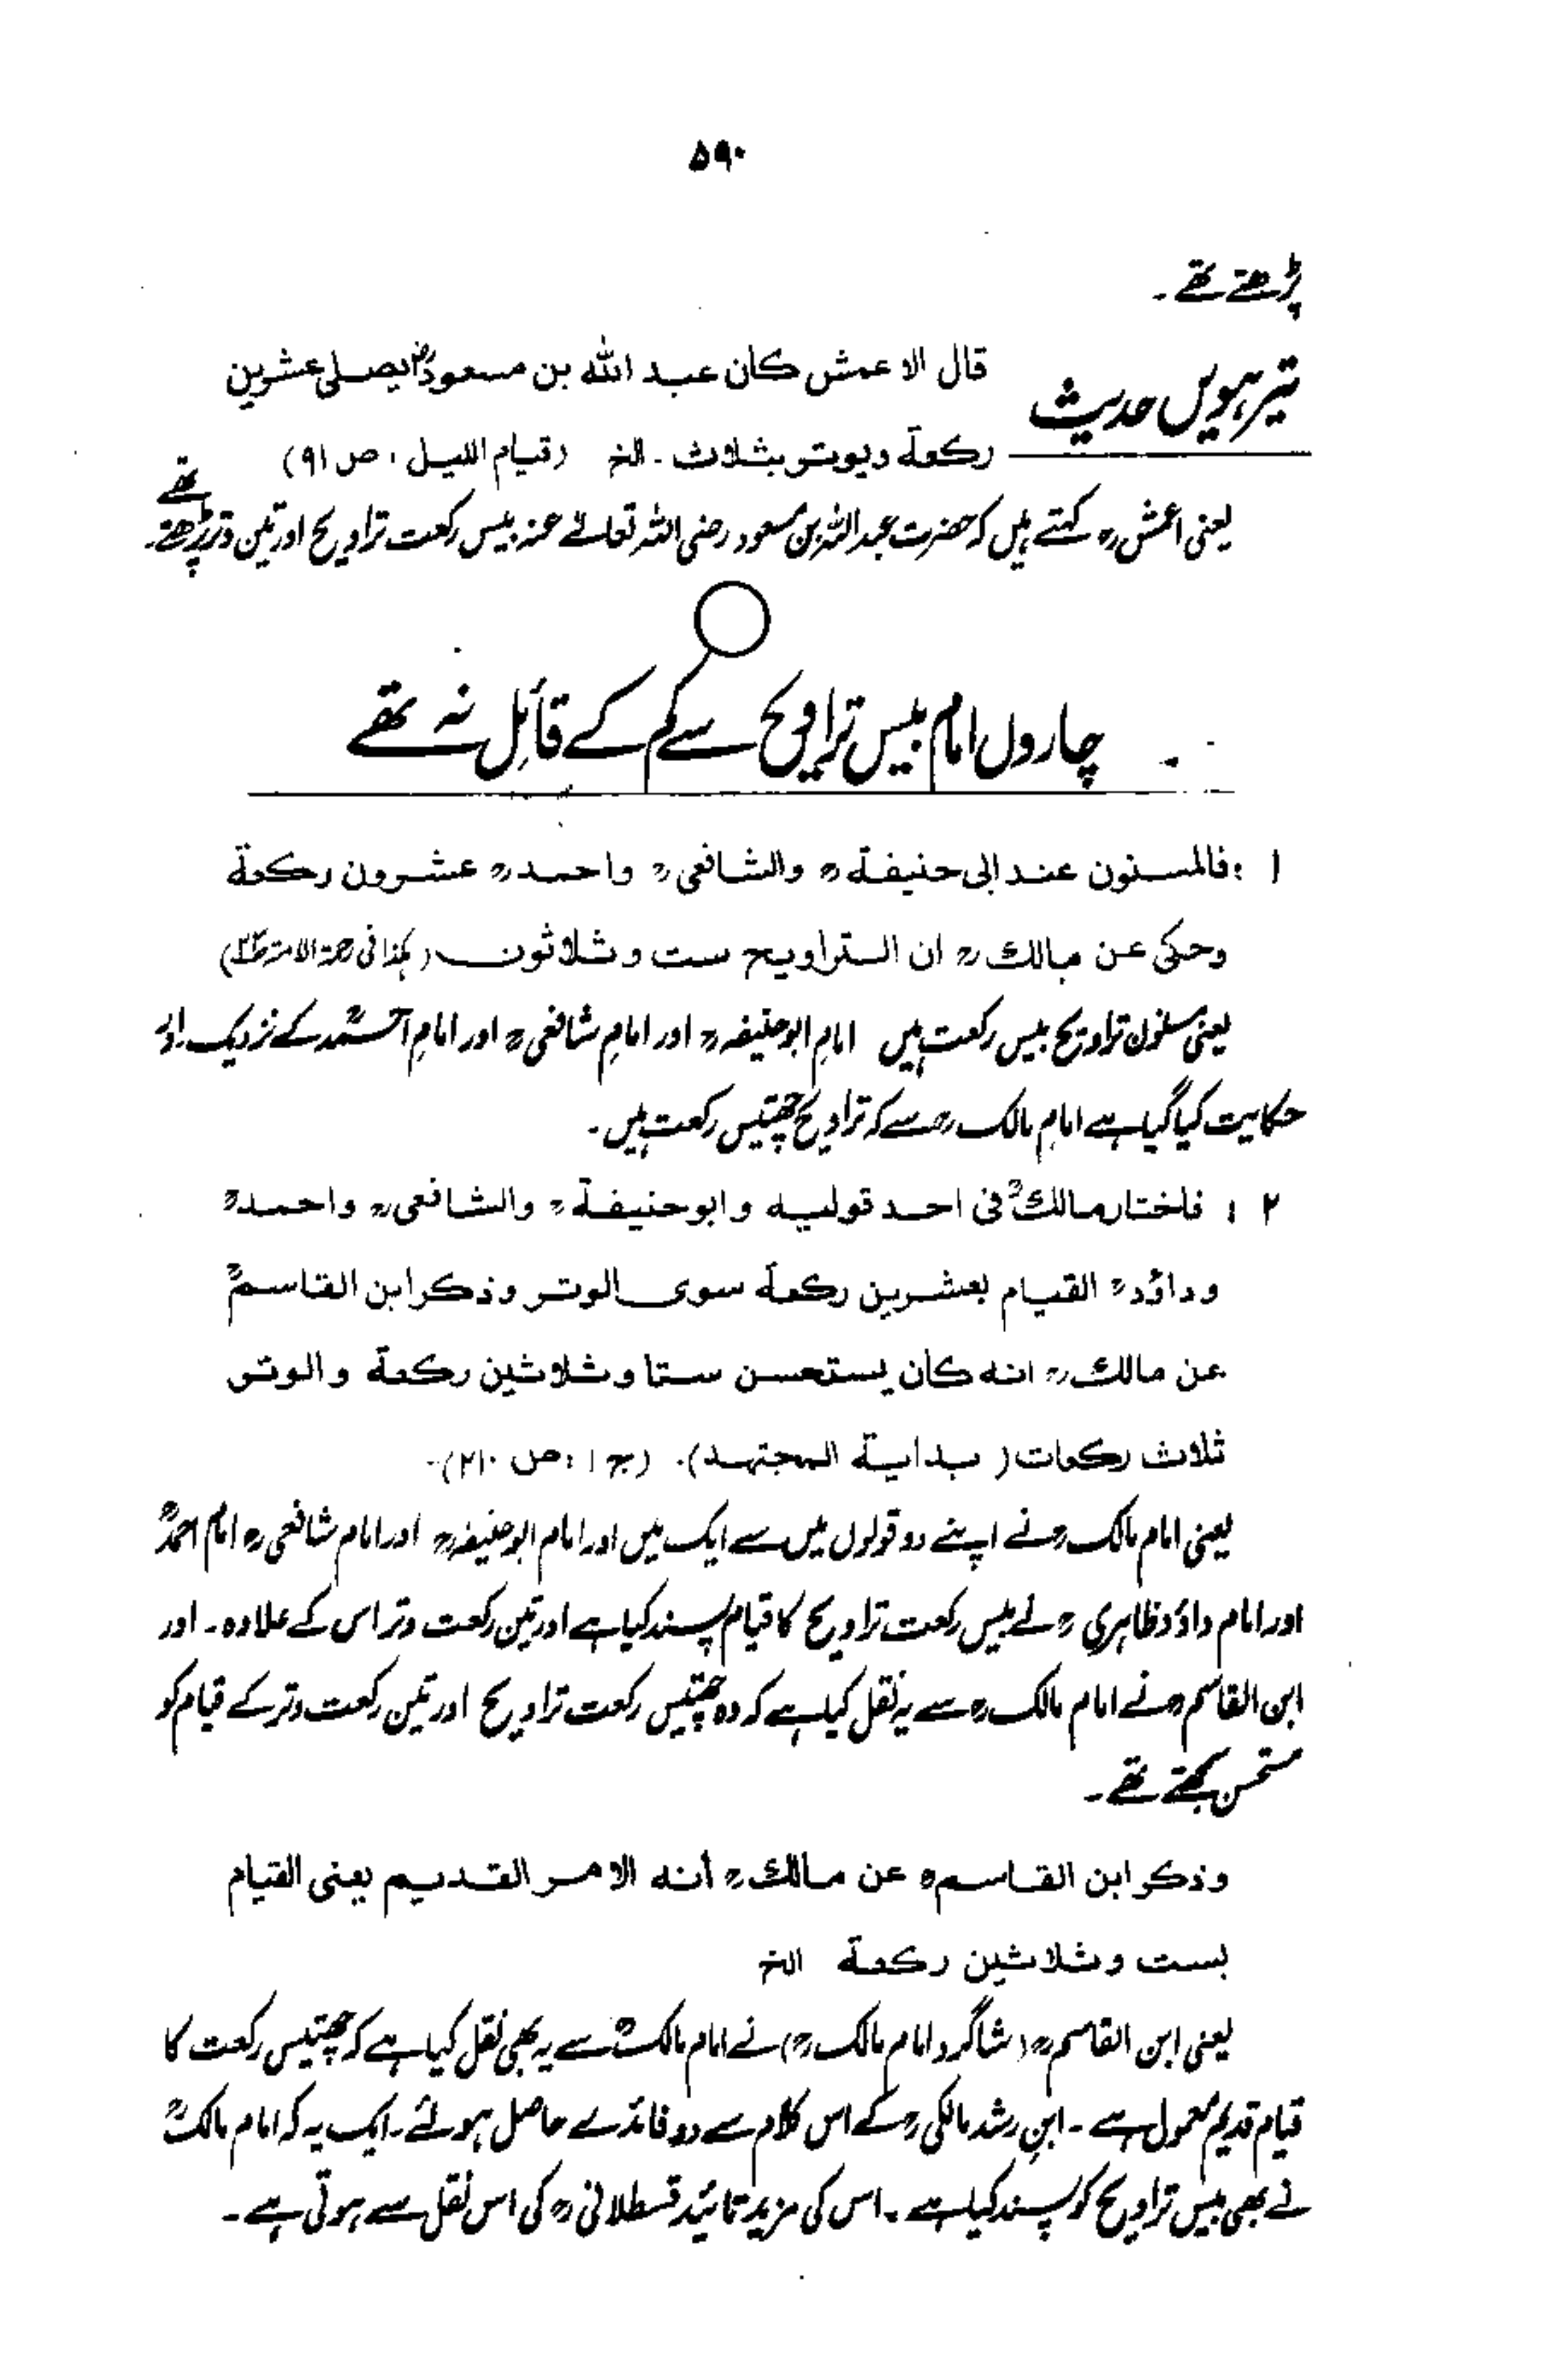 ۵۹۰
پڑھتے تھے۔
تیرہویں حدیث قال الاعمش کان عبد اللہ بن مسعودؓ یصلی عشرین
رکعة ویوتر بثلاث۔ الخ (قیام اللیل، ص ۹۱)
یعنی اعمشؒ کہتے ہیں کہ حضرت عبداللہ بن مسعود رضی اللہ تعالےٰ عنہ بیس رکعت تراویح اور تین وتر پڑھتے تھے۔
چاروں امام بیس تراویح سے کم کے قائل نہ تھے
۱ : فالمسنون عند ابی حنیفةؒ والشافعیؒ واحمدؒ عشرون رکعة
وحکی عن مالکؒ ان التراویح ست وثلاثون (ہکذا فی رحمة الامة)
یعنی مسنون تراویح بیس رکعت ہیں امام ابوحنیفہؒ اور امامِ شافعیؒ اور امامِ احمدؒ کے نزدیک۔ اور
حکایت کیا گیا ہے امامِ مالکؒ سے کہ تراویح چھتیس رکعت ہیں۔
۲ : فاختار مالکؒ فی احد قولیہ وابوحنیفةؒ والشافعیؒ واحمدؒ
وداؤدؒ القیام بعشرین رکعة سوی الوتر وذکر ابن القاسمؒ
عن مالکؒ انہ کان یستحسن ستا وثلاثین رکعة والوتر
ثلاث رکعات (بدایة المجتہد)۔ (ج ۱، ص ۲۱۰)۔
یعنی امام مالکؒ نے اپنے دو قولوں میں سے ایک میں اور امام ابوحنیفہؒ اور امام شافعیؒ امام احمدؒ
اور امام داؤد ظاہریؒ نے بیس رکعت تراویح کا قیام پسند کیا ہے اور تین رکعت وتر اس کے علاوہ۔ اور
ابن القاسمؒ نے امام مالکؒ سے یہ نقل کیا ہے کہ وہ چھتیس رکعت تراویح اور تین رکعت وتر کے قیام کو
مستحسن سمجھتے تھے۔
وذکر ابن القاسمؒ عن مالکؒ أنہ الامر القدیم یعنی القیام
بست وثلاثین رکعة الخ
یعنی ابن القاسمؒ (شاگرد امام مالکؒ) نے امام مالکؒ سے یہ بھی نقل کیا ہے کہ چھتیس رکعت کا
قیام قدیم معمول ہے۔ ابنِ رشد مالکیؒ کے اس کلام سے دو فائدے حاصل ہوئے۔ ایک یہ کہ امام مالکؒ
نے بھی بیس تراویح کو پسند کیا ہے۔ اس کی مزید تائید قسطلانیؒ کی اس نقل سے ہوتی ہے۔